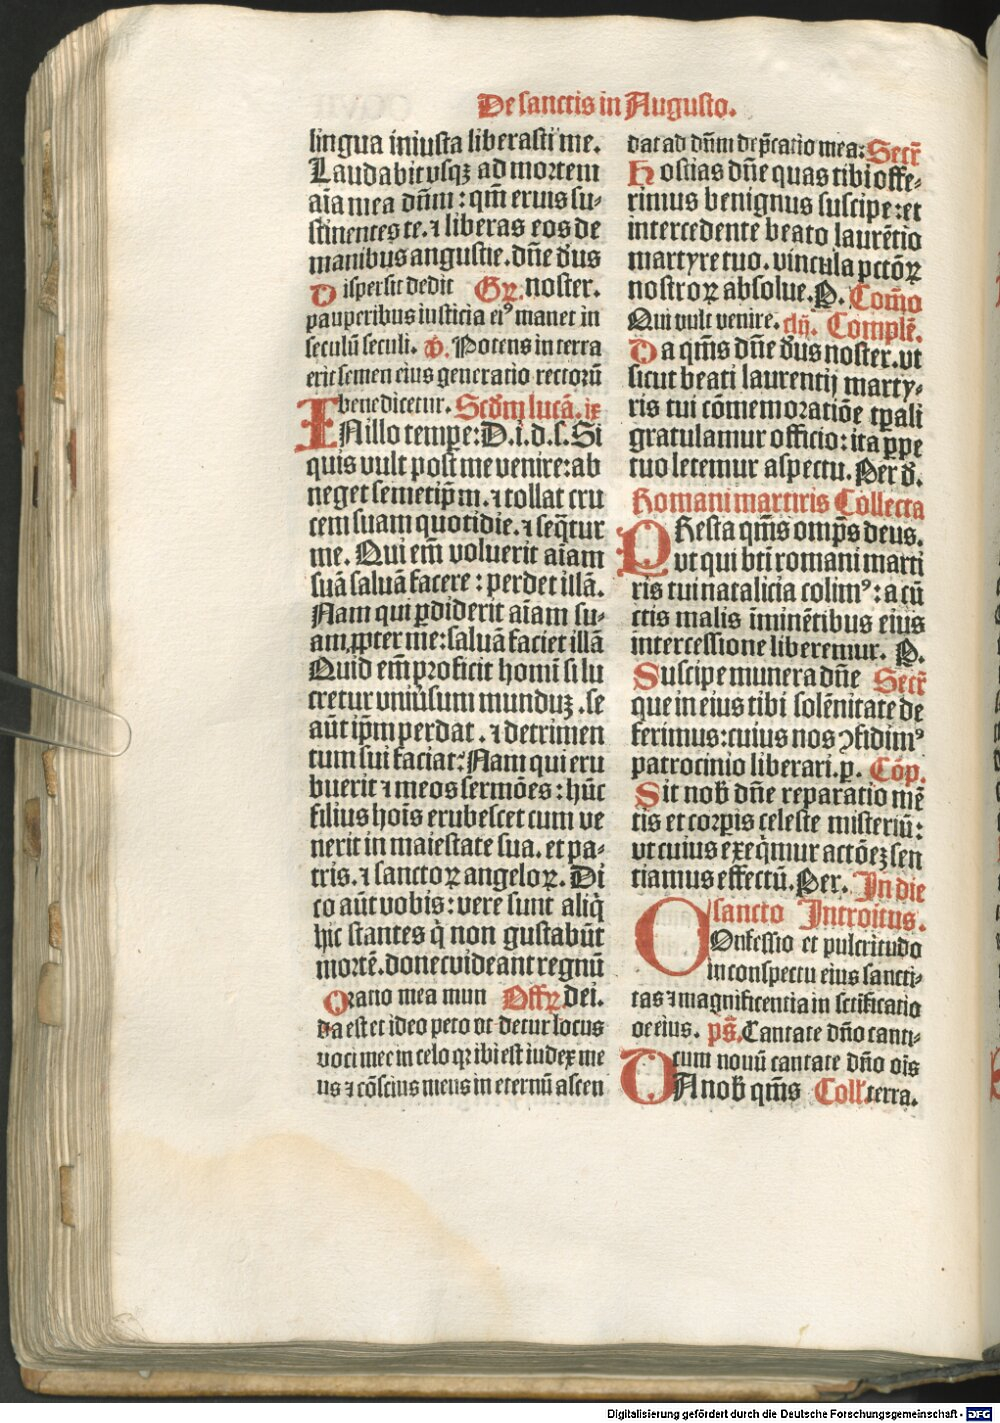 De sanctis in Augusto.
lingua iniusta liberasti me.
Laudabit vsqꝫ ad mortem
aīa mea dūm : qm̄ eruis su⸗
stinentes te. ⁊ liberas eos de
manibus angustie. dn̄e d̄us
Dispersit dedit Gꝛ. noster.
pauperibus iusticia eiꝰ manet in
seculū seculi. v̄. Potens in terra
erit semen eius generatio rectorū
benedicetur. Scd̄m lucā. ix
IN illo tempe: D. i. d. s. Si
quis vult post me venire: ab
neget semetip̄m. ⁊ tollat cru
cem suam quotidie. ⁊ seq̄tur
me. Qui em̄ voluerit aīam
suā saluā facere : perdet illā.
Nam qui ꝑdiderit aīam su⸗
am ꝓpter me: saluā faciet illā
Quid em̄ proficit homī si lu
cretur vniūsum munduꝫ. se
aūt ip̄m perdat . ⁊ detrimen
tum sui faciat: Nam qui eru
buerit ⁊ meos sermōes : hūc
filius hoīs erubescet cum ve
nerit in maiestate sua. et pa⸗
tris. ⁊ sanctoꝝ angeloꝝ. Di
co aūt vobis : vere sunt aliq̄
hic stantes q̇ non gustabūt
mortē. donec videant regnū
Oratio mea mun Offꝝ. dei.
da est et ideo peto vt detur locus
voci mee in celo qꝛ ibi est iudex me
us ⁊ cōscius meus in eternū ascen
dat ad dn̄m dep̄catio mea: Secr̄
Hostias dn̄e quas tibi offe⸗
rimus benignus suscipe: et
intercedente beato laurētio
martyre tuo. vincula pctōꝝ
nostroꝝ absolue. P. Com̄o
Qui vult venire. dn̄. Complē.
Da qm̄s dn̄e d̄us noster. vt
sicut beati laurentij marty⸗
ris tui cōmemoratiōe tꝑali
gratulamur officio: ita ꝑpe
tuo letemur aspectu. Per d̄.
Romani martiris Collecta
PResta qm̄s omp̄s deus.
vt qui bt̄i romani marti
ris tui natalicia colimꝰ: a cū
ctis malis īminētibus eius
intercessione liberemur. P.
Suscipe munera dn̄e Secr̄
que in eius tibi solēnitate de
ferimus: cuius nos ꝯfidimꝰ
patrocinio liberari. p. Cōp.
Sit nob̄ dn̄e reparatio mē
tis et corꝑis celeste misteriū:
vt cuius exeq̄mur actōeꝫ sen
tiamus effectū. Per. In die
sancto Introitus.
COnfessio et pulcritudo
in conspectu eius sancti⸗
tas ⁊ magnificentia in sctificatio
oe eius. ps̄. Cantate dn̄o canti⸗
cum nouū cantate dn̄o oīs
DA nob̄ qm̄s Coll' terra.
Digitalisierung gefördert durch die Deutsche Forschungsgemeinschaft - DFG